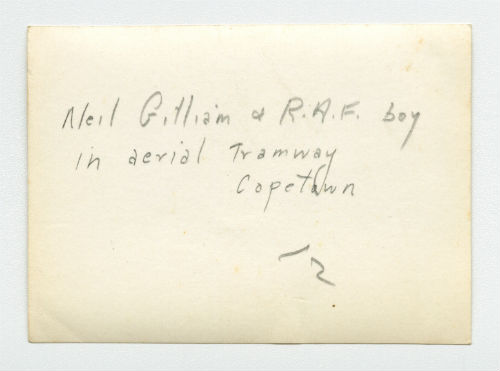 Neil Gilliam & R.A.F. boy
in aerial Tramway
Capetown